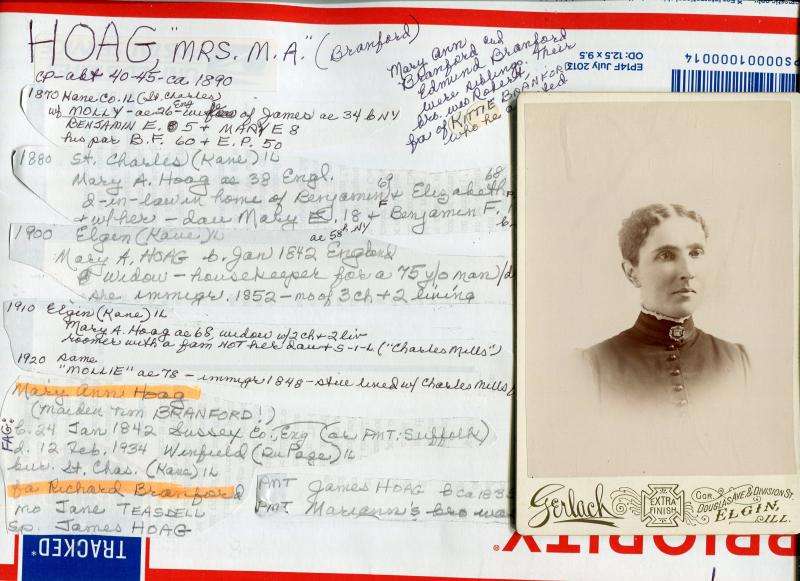 HOAG, "MRS. M. A." (Branford)
cp-abt 40-45-ca 1890
Mary Ann
Branford and
Edmund Branford
were siblings. Their
bro. was Robert
fa of KITTIE BRANFORD
who he
1870 Kane Co. IL (St. Charles)
w/ MOLLY - ae 26 - Eng of James ae 34 b NY
BENJAMIN E. 5 + MARY E 8
his par B.F. 60 + E.P. 50
1880 St. Charles (Kane) IL
Mary A. Hoag ae 38 Engl.
d-in-law in home of Benjamin 69 & Elizabeth 68
+ w/ her - dau Mary E. 18 + Benjamin F.
1900 Elgin (Kane) IL ae 58 NY
Mary A. HOAG b. Jan 1842 England
Widow - housekeeper for a 75 y/o man
she immigr. 1852 - mo of 3 ch + 2 living
1910 Elgin (Kane) IL
Mary A Hoag ae 68, widow w/2 ch + 2 liv
roomer with a fam NOT her dau + S-I-L ("Charles Mills")
1920 same
"MOLLIE" ae 78 - immigr 1848 - still lived w/ Charles Mills
Mary Ann Hoag
(Maiden BRANFORD!)
FAG:
b. 24 Jan 1842 Sussey Co., Eng (or AMT: Suffolk)
d. 12 Feb. 1934 Winfield (DuPage) IL
bur. St. Chas. (Kane) IL
fa Richard Branford
mo Jane TEASDELL
sp. James HOAG
AMT James HOAG b ca 1835
AMT Maryann's bro was
EP14F July 2013
OD: 12.5 x 9.5
PS00001000014
Gerlach
EXTRA
FINISH
COR.
DOUGLAS AVE & DIVISION ST.
ELGIN,
ILL.
TRACKED*
PRIORITY